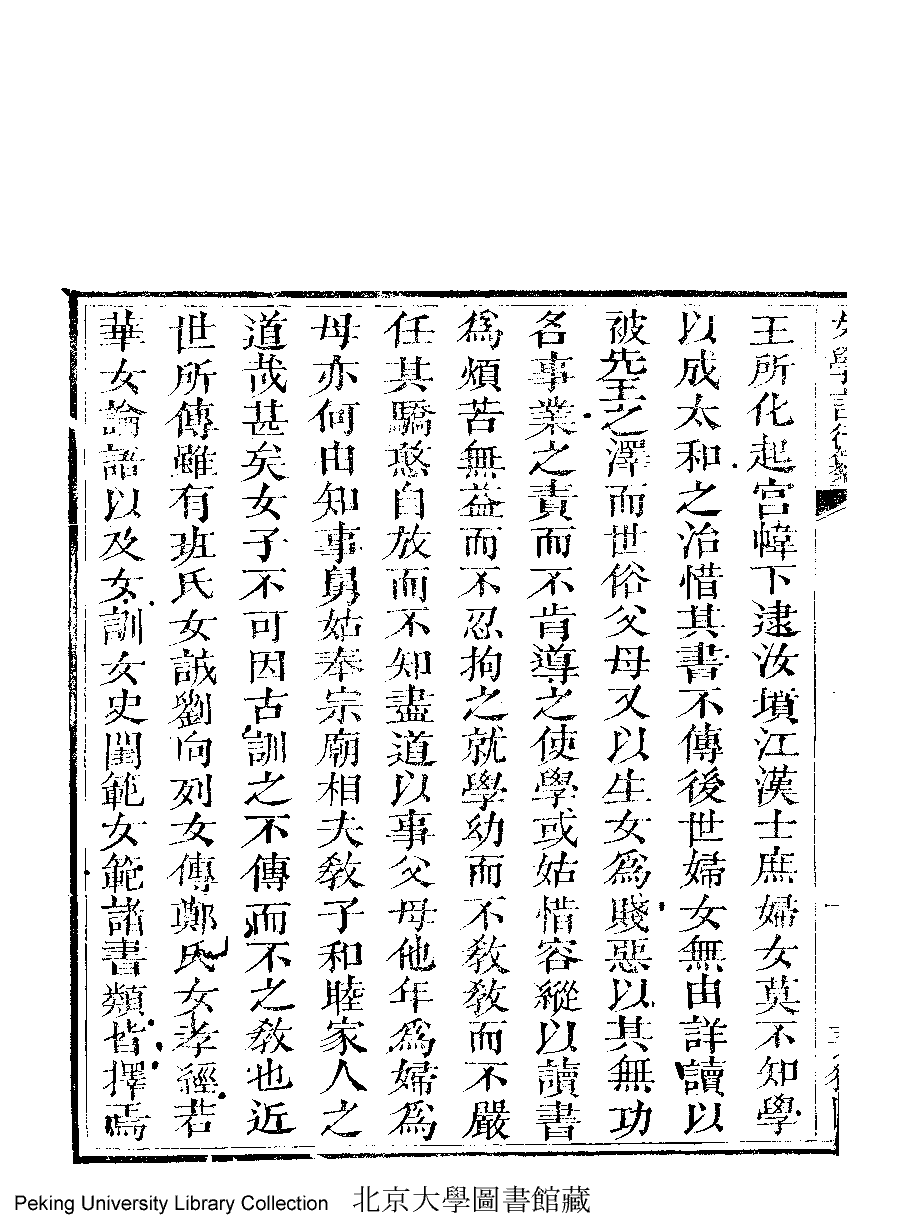 女學言行纂
王所化起宮幃下逮汝墳江漢士庶婦女莫不知學
以成太和之治惜其書不傳後世婦女無由詳讀以
被先王之澤而世俗父母又以生女爲賤惡以其無功
名事業之責而不肯導之使學或姑惜容縱以讀書
爲煩苦無益而不忍拘之就學幼而不敎敎而不嚴
任其驕憨自放而不知盡道以事父母他年爲婦爲
母亦何由知事舅姑奉宗廟相夫敎子和睦家人之
道哉甚矣女子不可因古訓之不傳而不之敎也近
世所傳雖有班氏女誡劉向列女傳鄭氏女孝經若
華女論語以及女訓女史閨範女範諸書類皆擇焉
Peking University Library Collection 北京大學圖書館藏